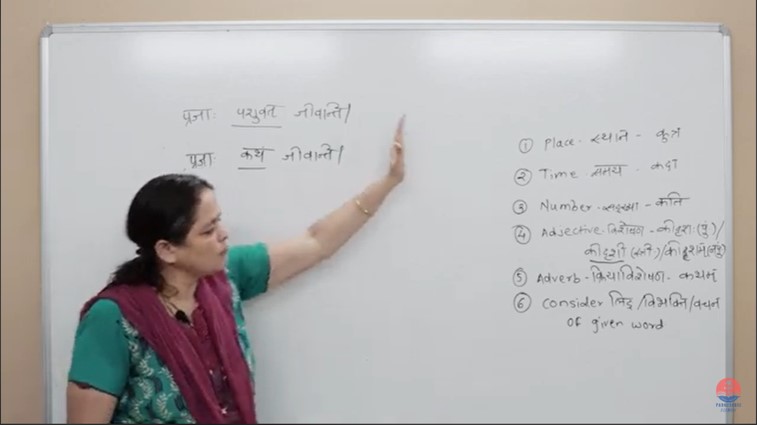 प्रजाः पशुवत् जीवन्ति।
प्रजाः कथं जीवन्ति।
① Place - स्थान - कुत्र
② Time - समय - कदा
③ Number - सङ्ख्या - कति
④ Adjective - विशेषण - कीदृशः (पुं)/
कीदृशी (स्त्री)/कीदृशम् (नपुं)
⑤ Adverb - क्रियाविशेषण - कथम्
⑥ Consider लिङ्ग/विभक्ति/वचन
of given word